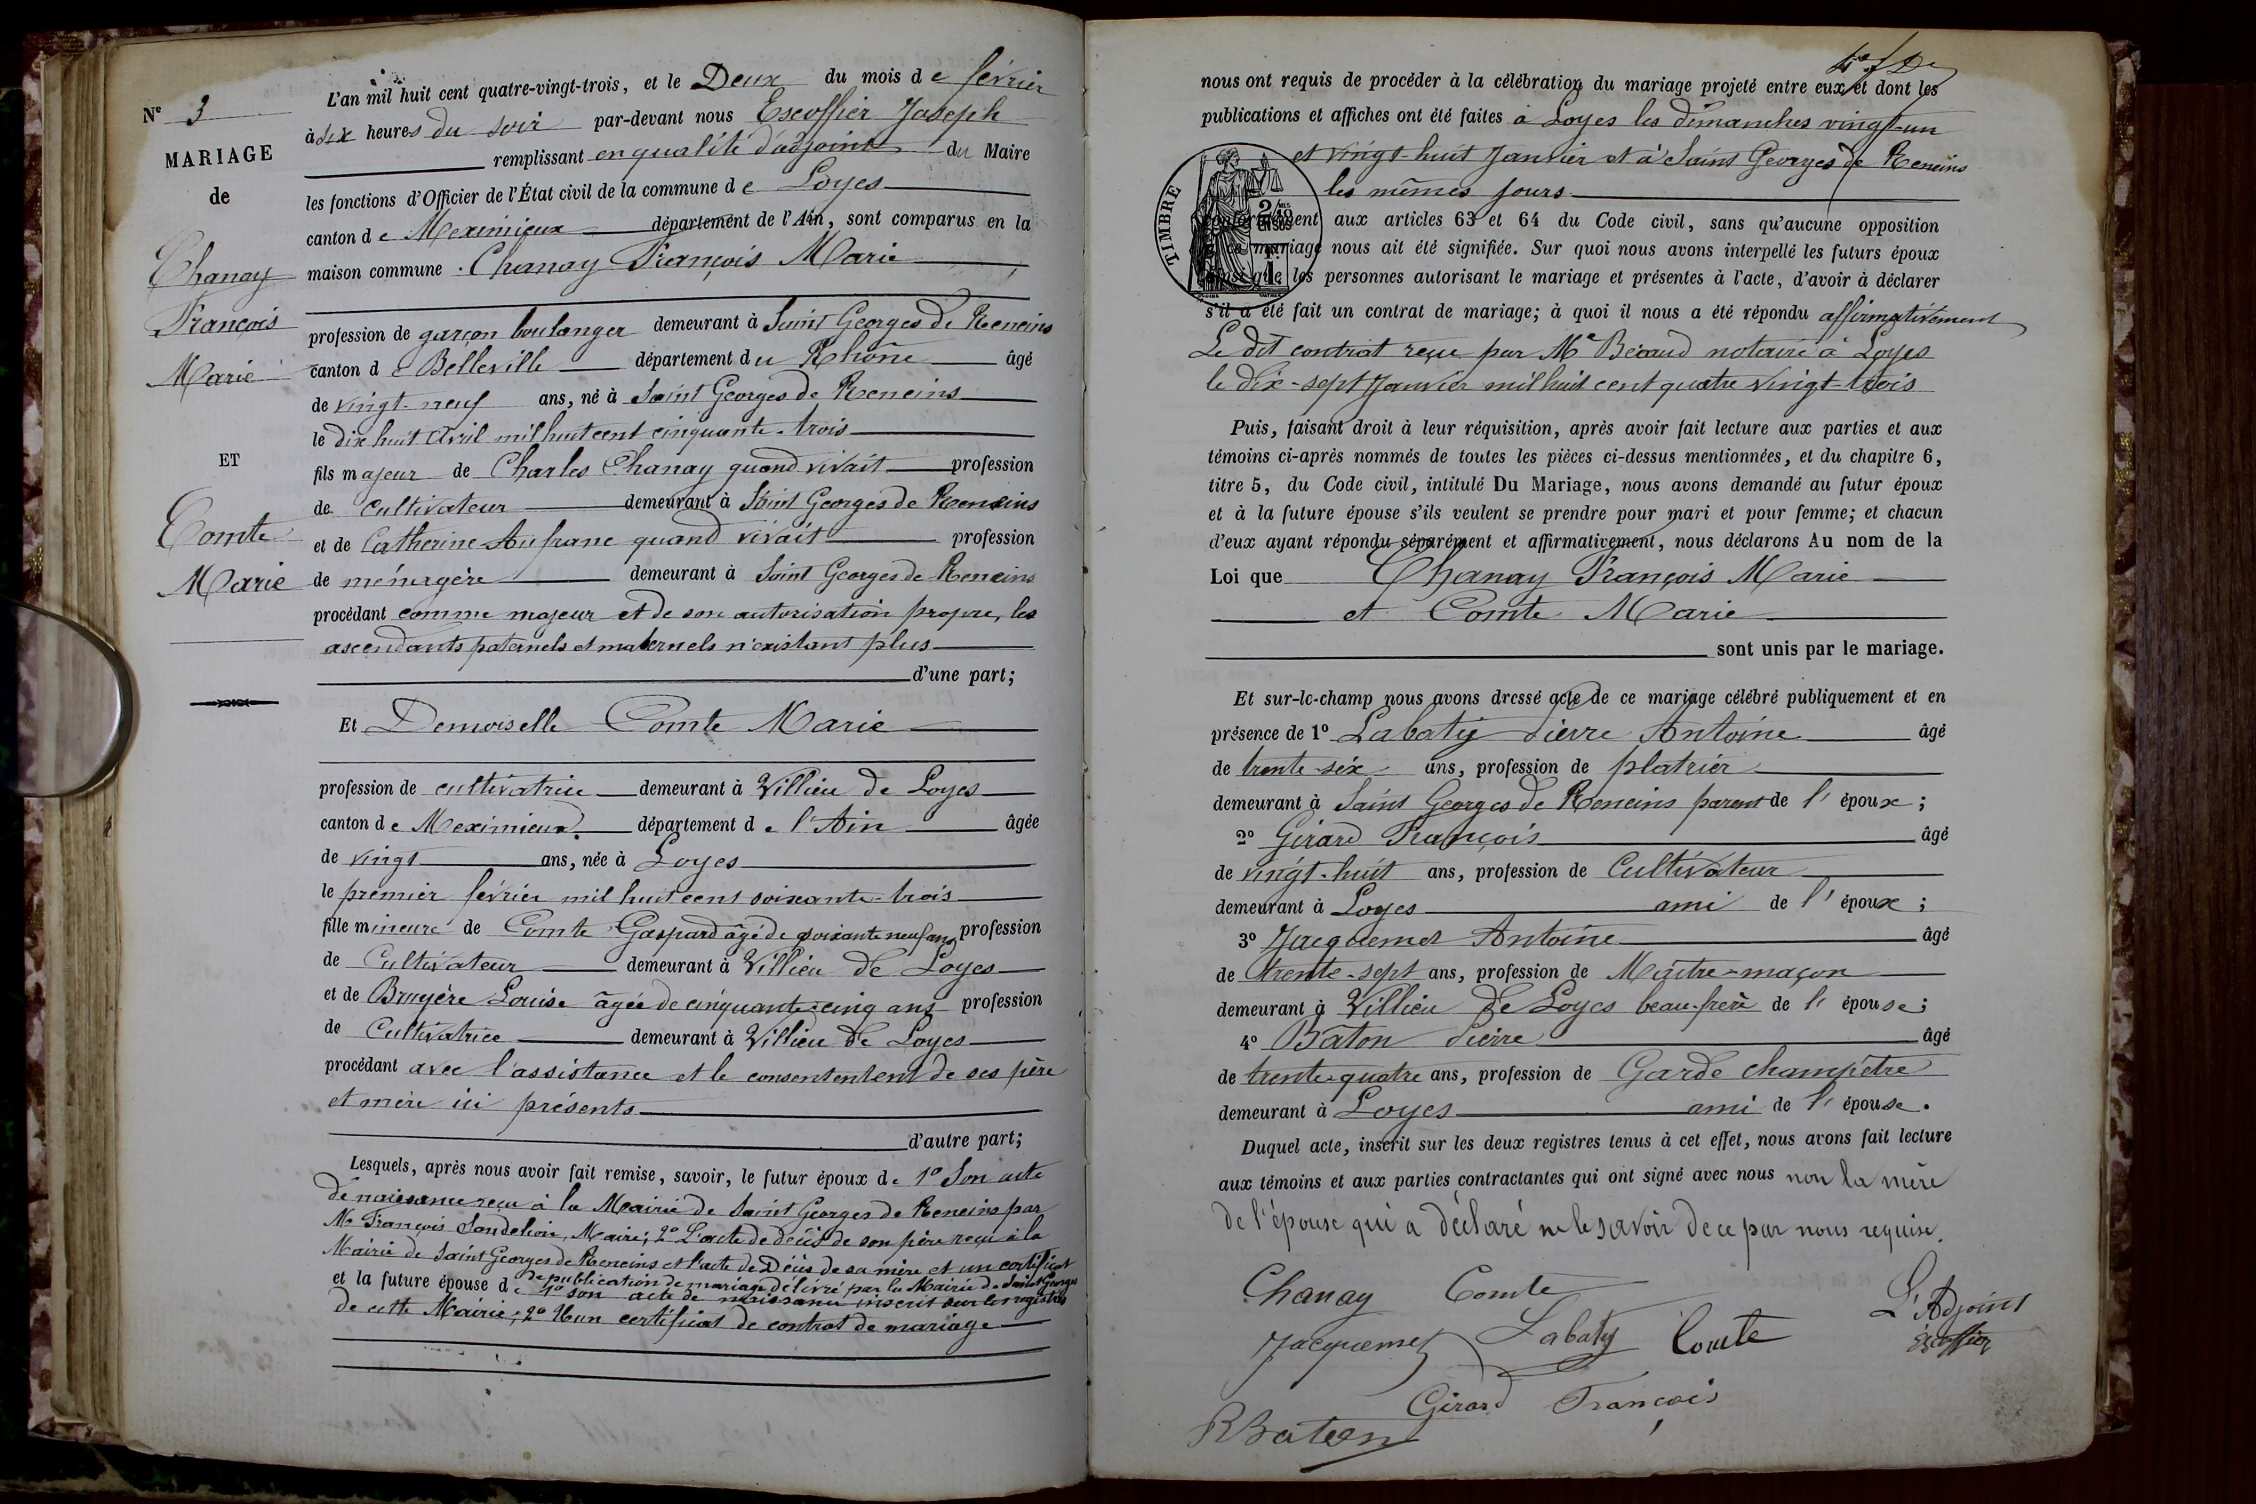 N° 3
MARIAGE
de
Chanay
François
Marie
ET
Comte
Marie
L'an mil huit cent quatre-vingt-trois, et le Deux du mois de février
à six heures du soir par-devant nous Escoffier Joseph
remplissant en qualité d'adjoint du Maire
les fonctions d'Officier de l'État civil de la commune de Loyes
canton de Meximieux département de l'Ain, sont comparus en la
maison commune. Chanay François Marie
profession de garçon boulanger demeurant à Saint Georges de Reneins
canton de Belleville département du Rhône âgé
de vingt-neuf ans, né à Saint Georges de Reneins
le dix huit Avril mil huit cent cinquante-trois
fils majeur de Charles Chanay quand vivait profession
de Cultivateur demeurant à Saint Georges de Reneins
et de Catherine Aufranc quand vivait profession
de ménagère demeurant à Saint Georges de Reneins
procédant comme majeur et de son autorisation propre, les
ascendants paternels et maternels n'existant plus
d'une part;
Et Demoiselle Comte Marie
profession de cultivatrice demeurant à Villieu de Loyes
canton de Meximieux département de l'Ain âgée
de vingt ans, née à Loyes
le premier février mil huit cent soixante-trois
fille mineure de Comte Gaspard âgé de soixante neuf ans profession
de Cultivateur demeurant à Villieu de Loyes
et de Bruyère Louise âgée de cinquante-cinq ans profession
de Cultivatrice demeurant à Villieu de Loyes
procédant avec l'assistance et le consentement de ses père
et mère ici présents
d'autre part;
Lesquels, après nous avoir fait remise, savoir, le futur époux de 1° Son acte
de naissance reçu à la Mairie de Saint Georges de Reneins par
Mr François Sandelion, Maire; 2° L'acte de décès de son père reçu à la
Mairie de Saint Georges de Reneins et l'acte de Décès de sa mère et un certificat
de publication de mariage délivré par la Mairie de Saint Georges
et la future épouse de 1° son acte de naissance inscrit sur les registres
de cette Mairie; 2° Un certificat de contrat de mariage
nous ont requis de procéder à la célébration du mariage projeté entre eux et dont les
publications et affiches ont été faites à Loyes les dimanches vingt-un
et vingt-huit Janvier et à Saint Georges de Reneins
les mêmes jours
TIMBRE
conformément aux articles 63 et 64 du Code civil, sans qu'aucune opposition
mariage nous ait été signifiée. Sur quoi nous avons interpellé les futurs époux
ainsi que les personnes autorisant le mariage et présentes à l'acte, d'avoir à déclarer
s'il a été fait un contrat de mariage; à quoi il nous a été répondu affirmativement
Le dit contrat reçu par Me Béraud notaire à Loyes
le dix-sept Janvier mil huit cent quatre vingt-trois
Puis, faisant droit à leur réquisition, après avoir fait lecture aux parties et aux
témoins ci-après nommés de toutes les pièces ci-dessus mentionnées, et du chapitre 6,
titre 5, du Code civil, intitulé Du Mariage, nous avons demandé au futur époux
et à la future épouse s'ils veulent se prendre pour mari et pour femme; et chacun
d'eux ayant répondu séparément et affirmativement, nous déclarons Au nom de la
Loi que Chanay François Marie
et Comte Marie
sont unis par le mariage.
Et sur-le-champ nous avons dressé acte de ce mariage célébré publiquement et en
présence de 1° Labaty Pierre Antoine âgé
de trente-six ans, profession de platrier
demeurant à Saint Georges de Reneins parent de l'époux;
2° Girard François âgé
de vingt-huit ans, profession de Cultivateur
demeurant à Loyes ami de l'époux;
3° Jacquemet Antoine âgé
de trente-sept ans, profession de Maître-maçon
demeurant à Villieu de Loyes beau-frère de l'épouse;
4° Bâton Pierre âgé
de trente-quatre ans, profession de Garde champêtre
demeurant à Loyes ami de l'épouse.
Duquel acte, inscrit sur les deux registres tenus à cet effet, nous avons fait lecture
aux témoins et aux parties contractantes qui ont signé avec nous non la mère
de l'épouse qui a déclaré ne le savoir de ce par nous requise.
Chanay Comte
L'Adjoint
Escoffier
Jacquemet Labaty Comte
Girard François
P Baton